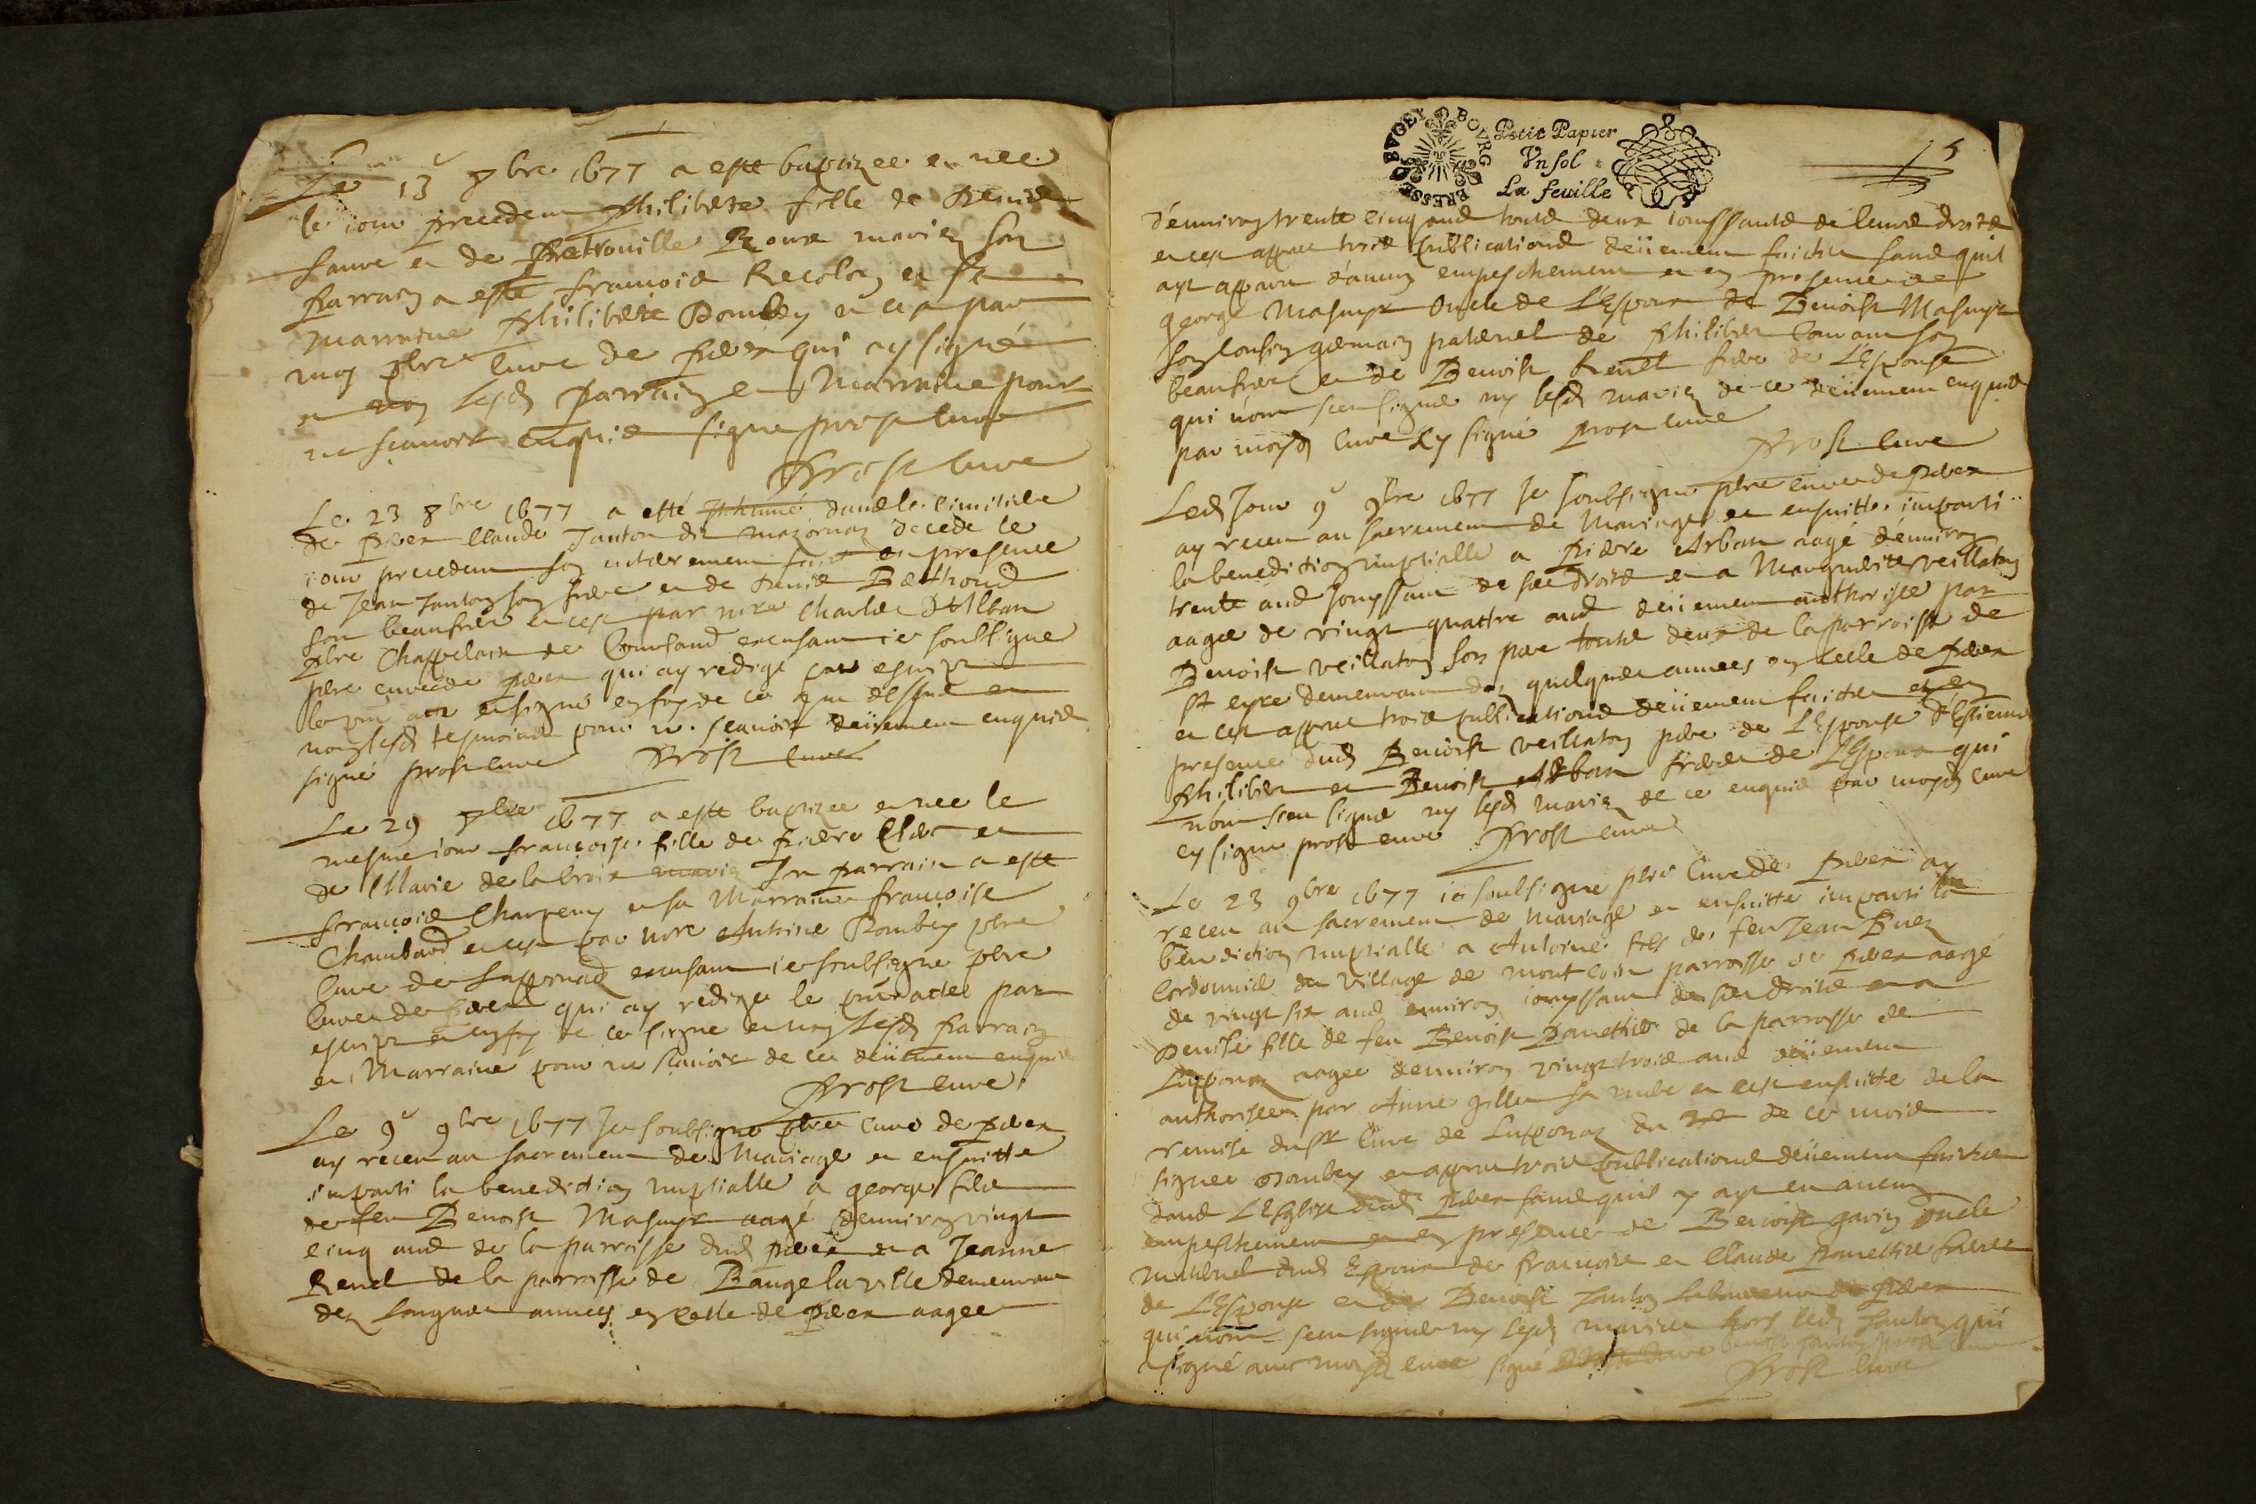 Le 13 8bre 1677 a esté baptizee et nee
le iour precedent Philiberte fille de Denis
et de Petronille mariez son
parrain a esté françois Recolon et sa
marraine Philiberte Dombey et ce par
moy pbre curé de qui ay signé
et non lesd parrain et marraine pour
ne sçavoir enquis signe prost curé
Prost curé
Le 23 8bre 1677 a esté inhumé dans le cimitiere
de Claude Janton de decede le
iour precedent son enterrement fait en presence
de Jean Janton son frere et de Denis Berthoud
son beaufrere et ce par mre Charles
pbre Chappelain de excusant ie soubsigné
pbre curé de qui ay redigé par escript
le pnt acte et signé en foy de ce que dessus et
non lesd tesmoins pour ne sçavoir deüement enquis
signé prost curé Prost curé
Le 29 1677 a esté baptizee et nee le
mesme iour françoise fille de pierre et
de Marie de la croix son parrain a esté
françois Charpeny et sa Marraine françoise
Chambard et ce par mre Antoine Dombey pbre
Curé de Lupponas excusant ie soubsigné pbre
Curé de qui ay redigé le pnt acte par
escript en foy de ce signe et non lesd parrain
et Marraine pour ne sçavoir de ce deüement enquis
Prost curé
Le 9e 9bre 1677 Je soubsigné pbre curé de
ay receu au sacrement de Mariage et ensuitte
imparti la benediction nuptialle a george fils
de feu Benoist Masuyr aagé d'environ vingt
cinq ans de la parroisse dud et a Jeanne
Renel de la parroisse de Bauge la ville demeurant
dez longues annees en celle de aagee
BRESSE BVGEY BOVRG
Petit Papier
Vn sol
La feuille
5
d'environ trente cinq ans touts deux iouissants de leurs droits
et ce apprez trois publications deüement faictes sans quil
ayt apparu d'aucun empeschement et en presence de
george Masuyr oncle de L'Espoux de Benoist Masuyr
son cousin germain paternel de philibert son
beaufrere et de Benoist Renel frere de L'Espouse
qui n'ont sceu signer ny lesd mariez de ce deüement enquis
par moyd curé Ay signé prost curé
Prost curé
Led Jour 9e 9bre 1677 Je soubsigné pbre curé de
ay receu au sacrement de Mariage et ensuitte imparti
la benediction nuptialle a pierre Arban aagé d'environ
trente ans Jouyssant de ses droits et a Marguerite veillaton
aagee de vingt quattre ans deüement authorisee par
Benoist veillaton son pere touts deux de la parroisse de
St eyre demeurant dez quelques annees en celle de
et ce apprez trois publications deüement faictes et en
presence dud Benoist veillaton pere de L'Espouse d'Estienne
Philibert et Benoist Arban freres de L'Espoux qui
n'ont sceu signer ny lesd mariez de ce enquis par moyd curé
ay signe prost curé Prost curé
Le 23 9bre 1677 ie soubsigné pbre Curé de ay
receu au sacrement de Mariage et ensuitte imparti la
benediction nuptialle a Antoine fils de feu Jean
Cordonnier du village de mont parroisse de aagé
de vingt six ans environ iouyssant de ses droits et a
Denise fille de feu Benoist de la parroisse de
Lupponas aagee d'environ vingt trois ans deüement
authorisee par Anne sa mere et ce ensuitte de la
remise du sr Curé de Lupponas du de ce mois
signee Dombey et apprez trois publications deüement faictes
dans L'Eglise dud sans quil y ayt eu aucun
empeschement et en presence de Benoist gavin oncle
maternel dud Espoux de françois et Claude freres
de L'Espouse et de Benoist Janton laboureur de
qui n'ont sceu signer ny lesd mariez hors led Janton qui
a signé avec moyd curé signé
Prost curé